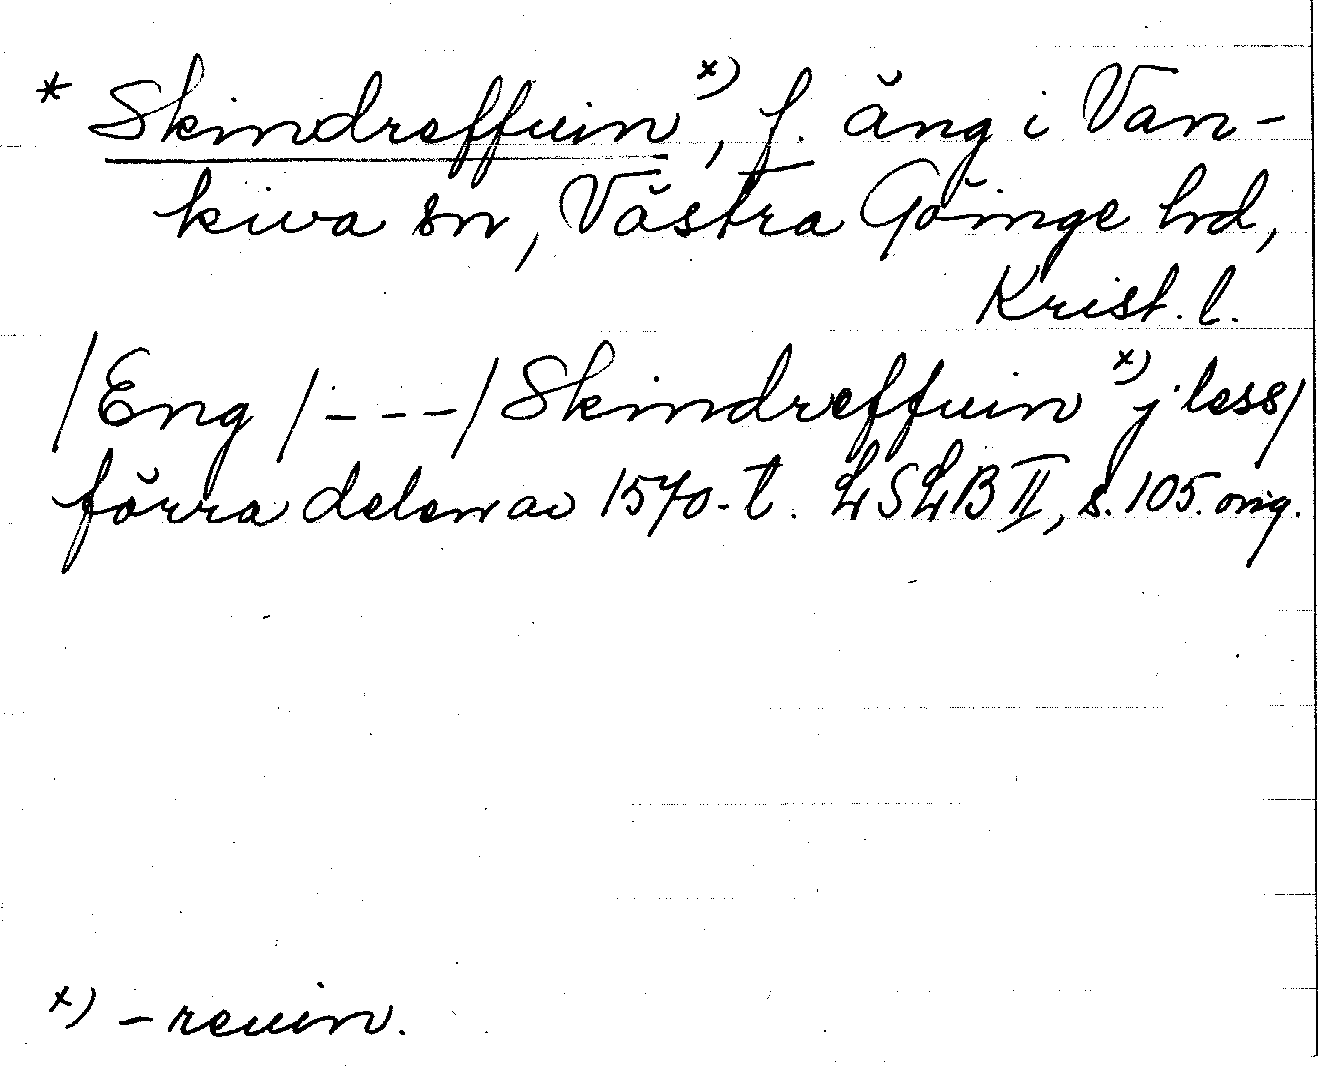 * Skindreffuin x), f. äng i Van-
kiva sn, Västra Göinge hd,
Krist. l.
/Eng /---/ Skindreffuin x) j less/
förra delen av 1570-t. LSLB II, s. 105. orig.
x) -reuin.